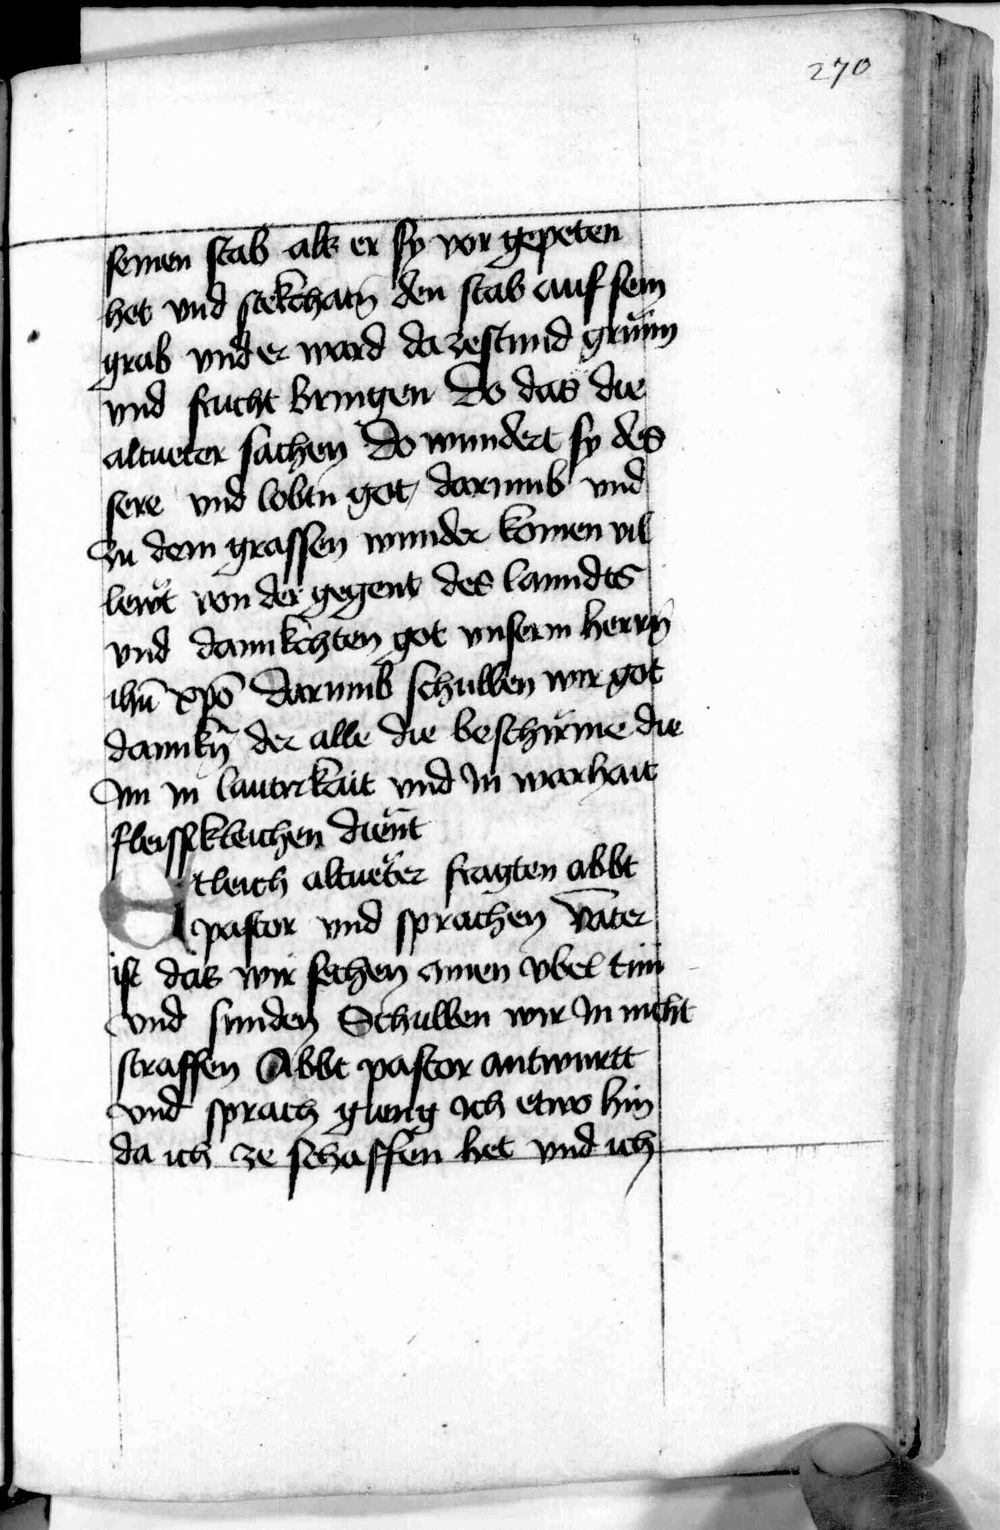 270
seinen stab als er sy vor gepeten
het vnd stekchatn̄ den stab auf sein
grab vnd er ward da zestund grün
vnd frucht bringen Do das die
altueter sachen Do wundert sy des
sere vnd lobtn got darumb vnd
zu dem grassen wunder komen vil
lewt von der gegent des lanndts
vnd dannkchten got vnserm herrn̄
ihū xp̄o darumb schullen wir got
dannkn̄ der alle die beschirme die
Im in lauterkait vnd In warhait
fleissikleichen dient
Etleich altueter fragten abbt
pastor vnd sprachen Vater
ist das wir sechen ainen vbel tun
vnd sunden Schullen wir In nicht
straffen Abbt pastor antwurtt
vnd sprach gieng Ich etwo hin
da ich ze schaffen het vnd ich